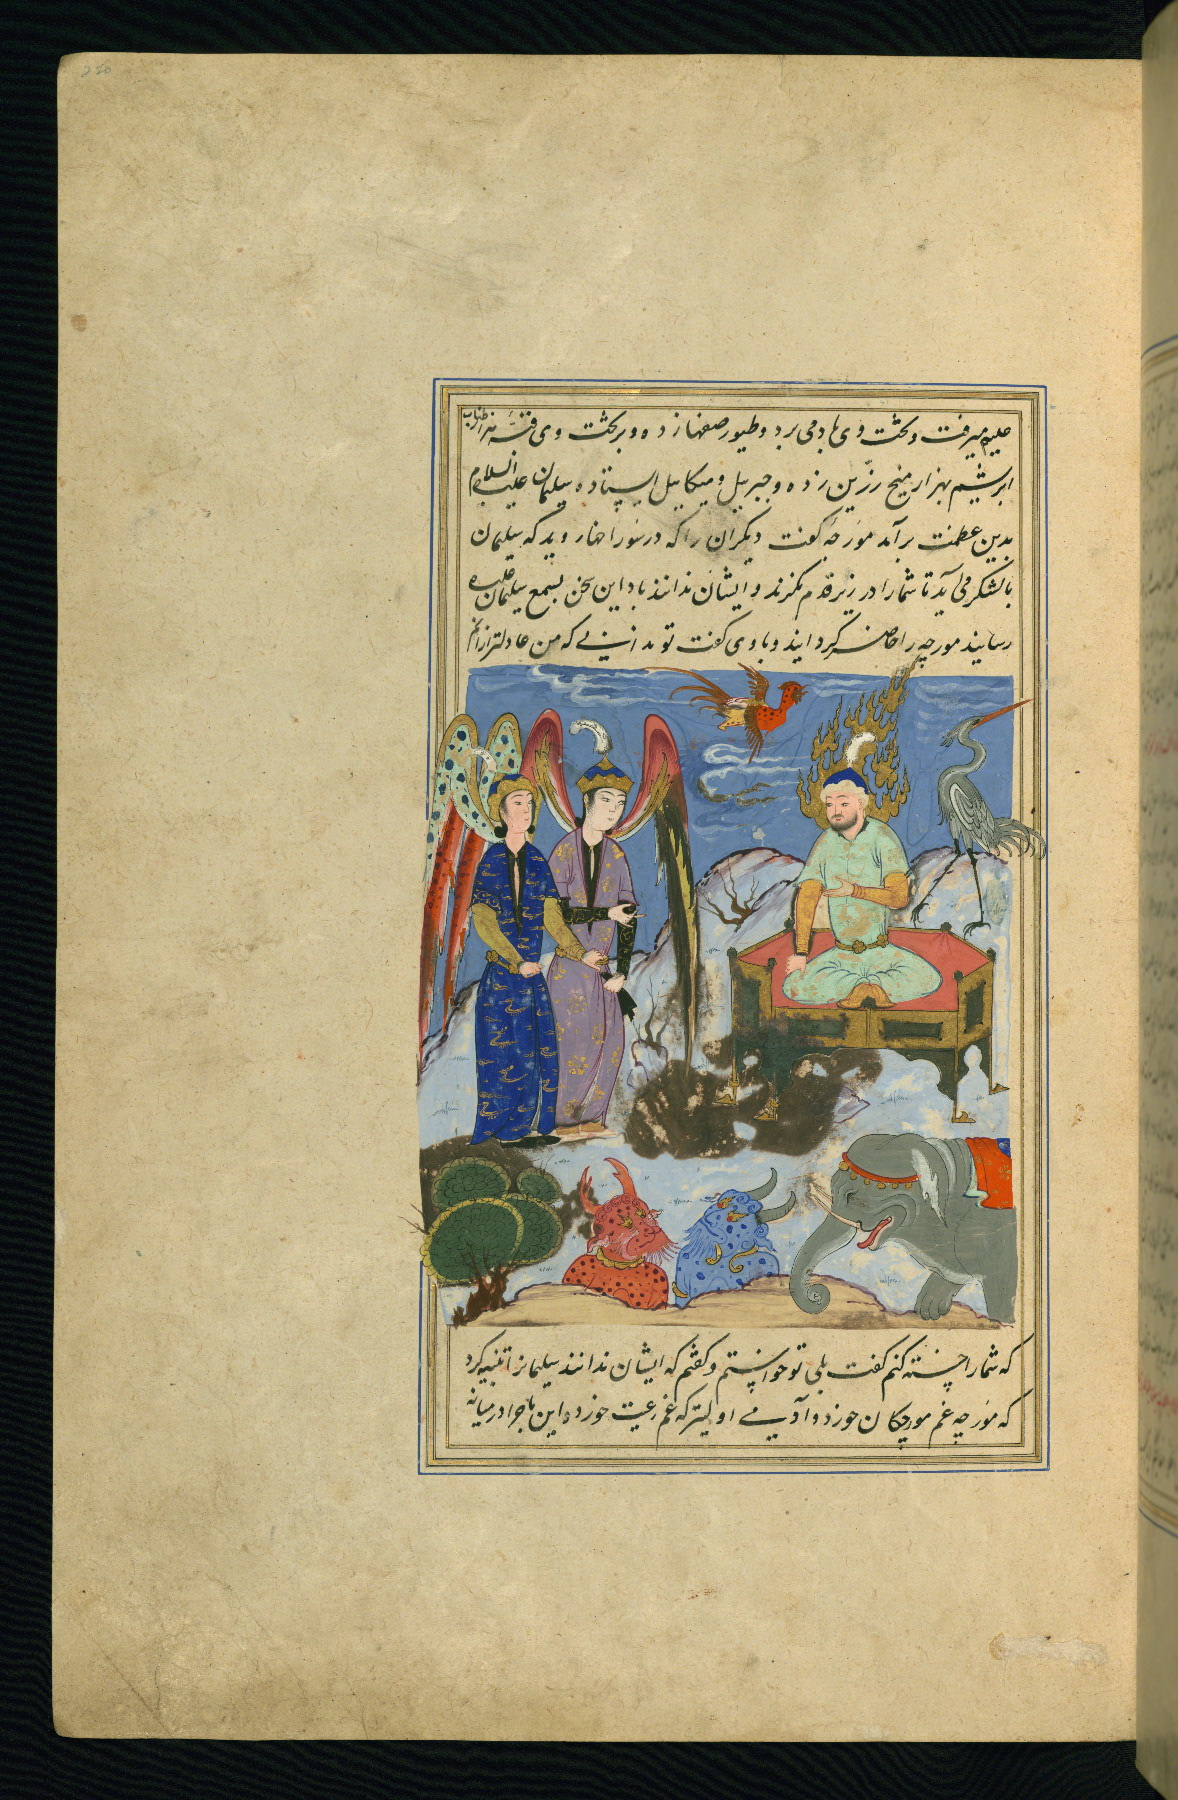 علیه میرفت و تخت وی باد می برد و طیور صفها زده و بر تخت وی قبّه بند اطناب
ابریشم بهزار میخ رزّین زده و جبریل و میکاییل ایستاده سلیمان علیه السلام
بدین عظمت برآمد مورچهٔ گفت دیکران را که در سوراخها روید که سلیمان
با لشکر می آید تا شما را در زیر قدم نکیرند و ایشان ندانند باد این سخن بسمع سلیمان علیه
رسانید مورچه را حاضر کردانید و با وی کفت تو ندانی که من عادلتر از انم
که شما را خسته کنم گفت بلی تو خواستم و کفتم که ایشان ندانند سلیمانرا تنبیه کرد
که مورچه غم مورچکان خورد و آدمی اولیتر که غم رعیت خورد و این ماجرا در میانه